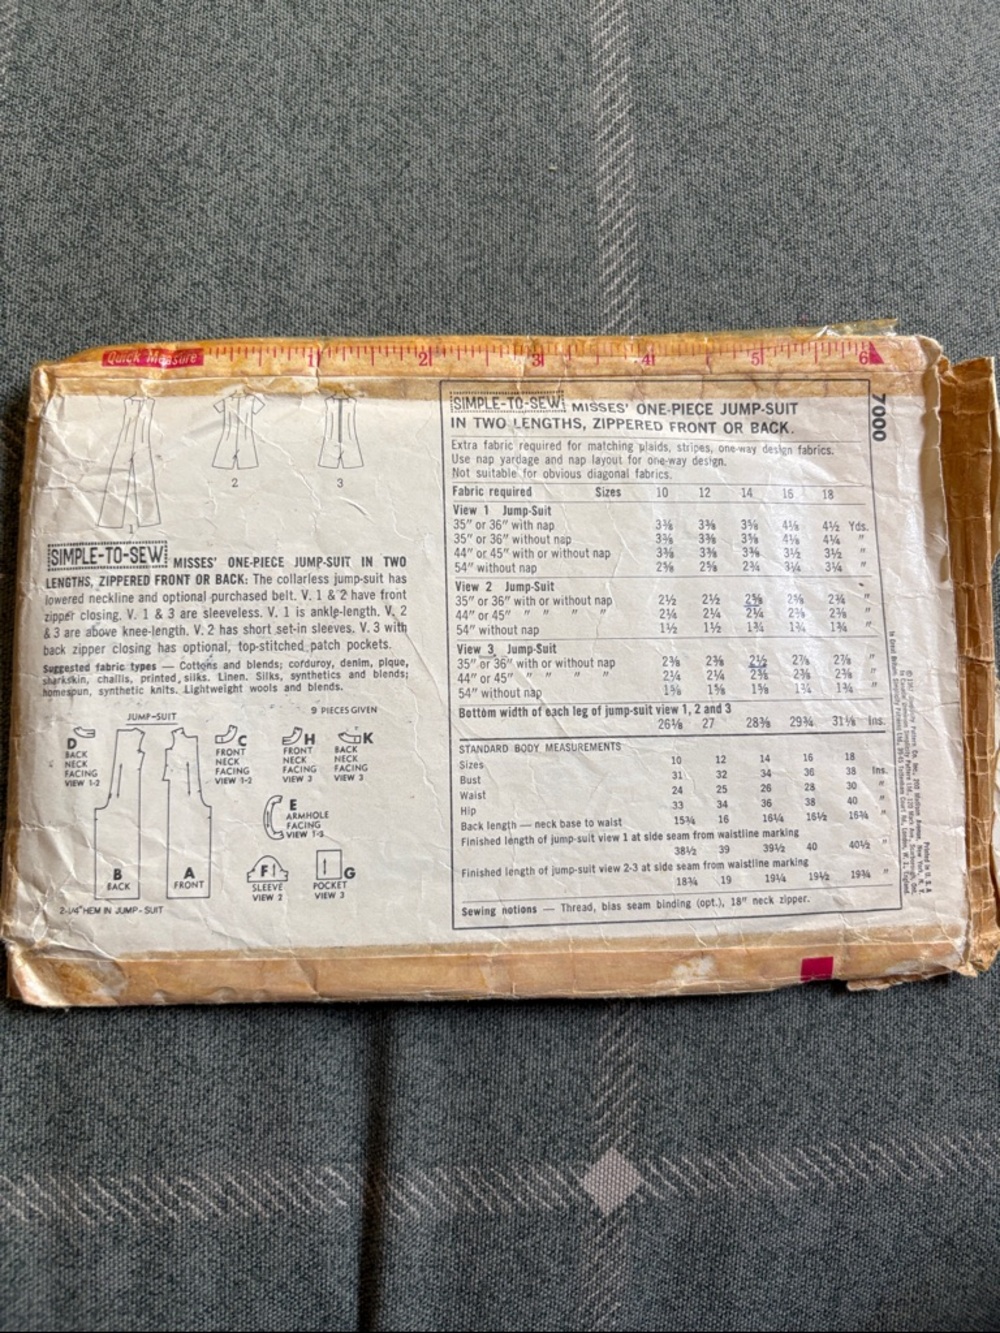 Quick Measure 1 2 3 4 5 6
1
2
3
SIMPLE-TO-SEW! MISSES' ONE-PIECE JUMP-SUIT IN TWO
LENGTHS, ZIPPERED FRONT OR BACK: The collarless jump-suit has
lowered neckline and optional purchased belt. V. 1 & 2 have front
zipper closing. V. 1 & 3 are sleeveless. V. 1 is ankle-length. V. 2
& 3 are above knee-length. V. 2 has short set-in sleeves. V. 3 with
back zipper closing has optional, top-stitched patch pockets.
Suggested fabric types — Cottons and blends; corduroy, denim, pique,
sharkskin, challis, printed silks. Linen. Silks, synthetics and blends;
homespun, synthetic knits. Lightweight wools and blends.
9 PIECES GIVEN
JUMP-SUIT
D
BACK
NECK
FACING
VIEW 1-2
C
FRONT
NECK
FACING
VIEW 1-2
H
FRONT
NECK
FACING
VIEW 3
K
BACK
NECK
FACING
VIEW 3
E
ARMHOLE
FACING
VIEW 1-3
B
BACK
A
FRONT
F
SLEEVE
VIEW 2
G
POCKET
VIEW 3
2-1/4" HEM IN JUMP-SUIT
SIMPLE-TO-SEW! MISSES' ONE-PIECE JUMP-SUIT
IN TWO LENGTHS, ZIPPERED FRONT OR BACK.
7000
Extra fabric required for matching plaids, stripes, one-way design fabrics.
Use nap yardage and nap layout for one-way design.
Not suitable for obvious diagonal fabrics.
Fabric required Sizes 10 12 14 16 18
View 1 Jump-Suit
35" or 36" with nap 3⅜ 3⅜ 3⅝ 4⅛ 4½ Yds.
35" or 36" without nap 3⅜ 3⅜ 3⅝ 4⅛ 4¼ "
44" or 45" with or without nap 3⅜ 3⅜ 3⅜ 3½ 3½ "
54" without nap 2⅝ 2⅝ 2¾ 3¼ 3¼ "
View 2 Jump-Suit
35" or 36" with or without nap 2½ 2½ 2⅝ 2⅝ 2¾ "
44" or 45" " " " " 2¼ 2¼ 2¼ 2⅜ 2⅜ "
54" without nap 1½ 1½ 1¾ 1¾ 1¾ "
View 3 Jump-Suit
35" or 36" with or without nap 2⅜ 2⅜ 2½ 2⅞ 2⅞ "
44" or 45" " " " " 2¼ 2¼ 2⅜ 2⅜ 2⅜ "
54" without nap 1⅝ 1⅝ 1⅝ 1¾ 1¾ "
Bottom width of each leg of jump-suit view 1, 2 and 3
26⅛ 27 28⅜ 29¾ 31⅛ Ins.
STANDARD BODY MEASUREMENTS
Sizes 10 12 14 16 18
Bust 31 32 34 36 38 Ins.
Waist 24 25 26 28 30 "
Hip 33 34 36 38 40 "
Back length — neck base to waist 15¾ 16 16¼ 16½ 16¾ "
Finished length of jump-suit view 1 at side seam from waistline marking
38½ 39 39½ 40 40½ "
Finished length of jump-suit view 2-3 at side seam from waistline marking
18¾ 19 19¼ 19½ 19¾ "
Sewing notions — Thread, bias seam binding (opt.), 18" neck zipper.
Printed in U. S. A.